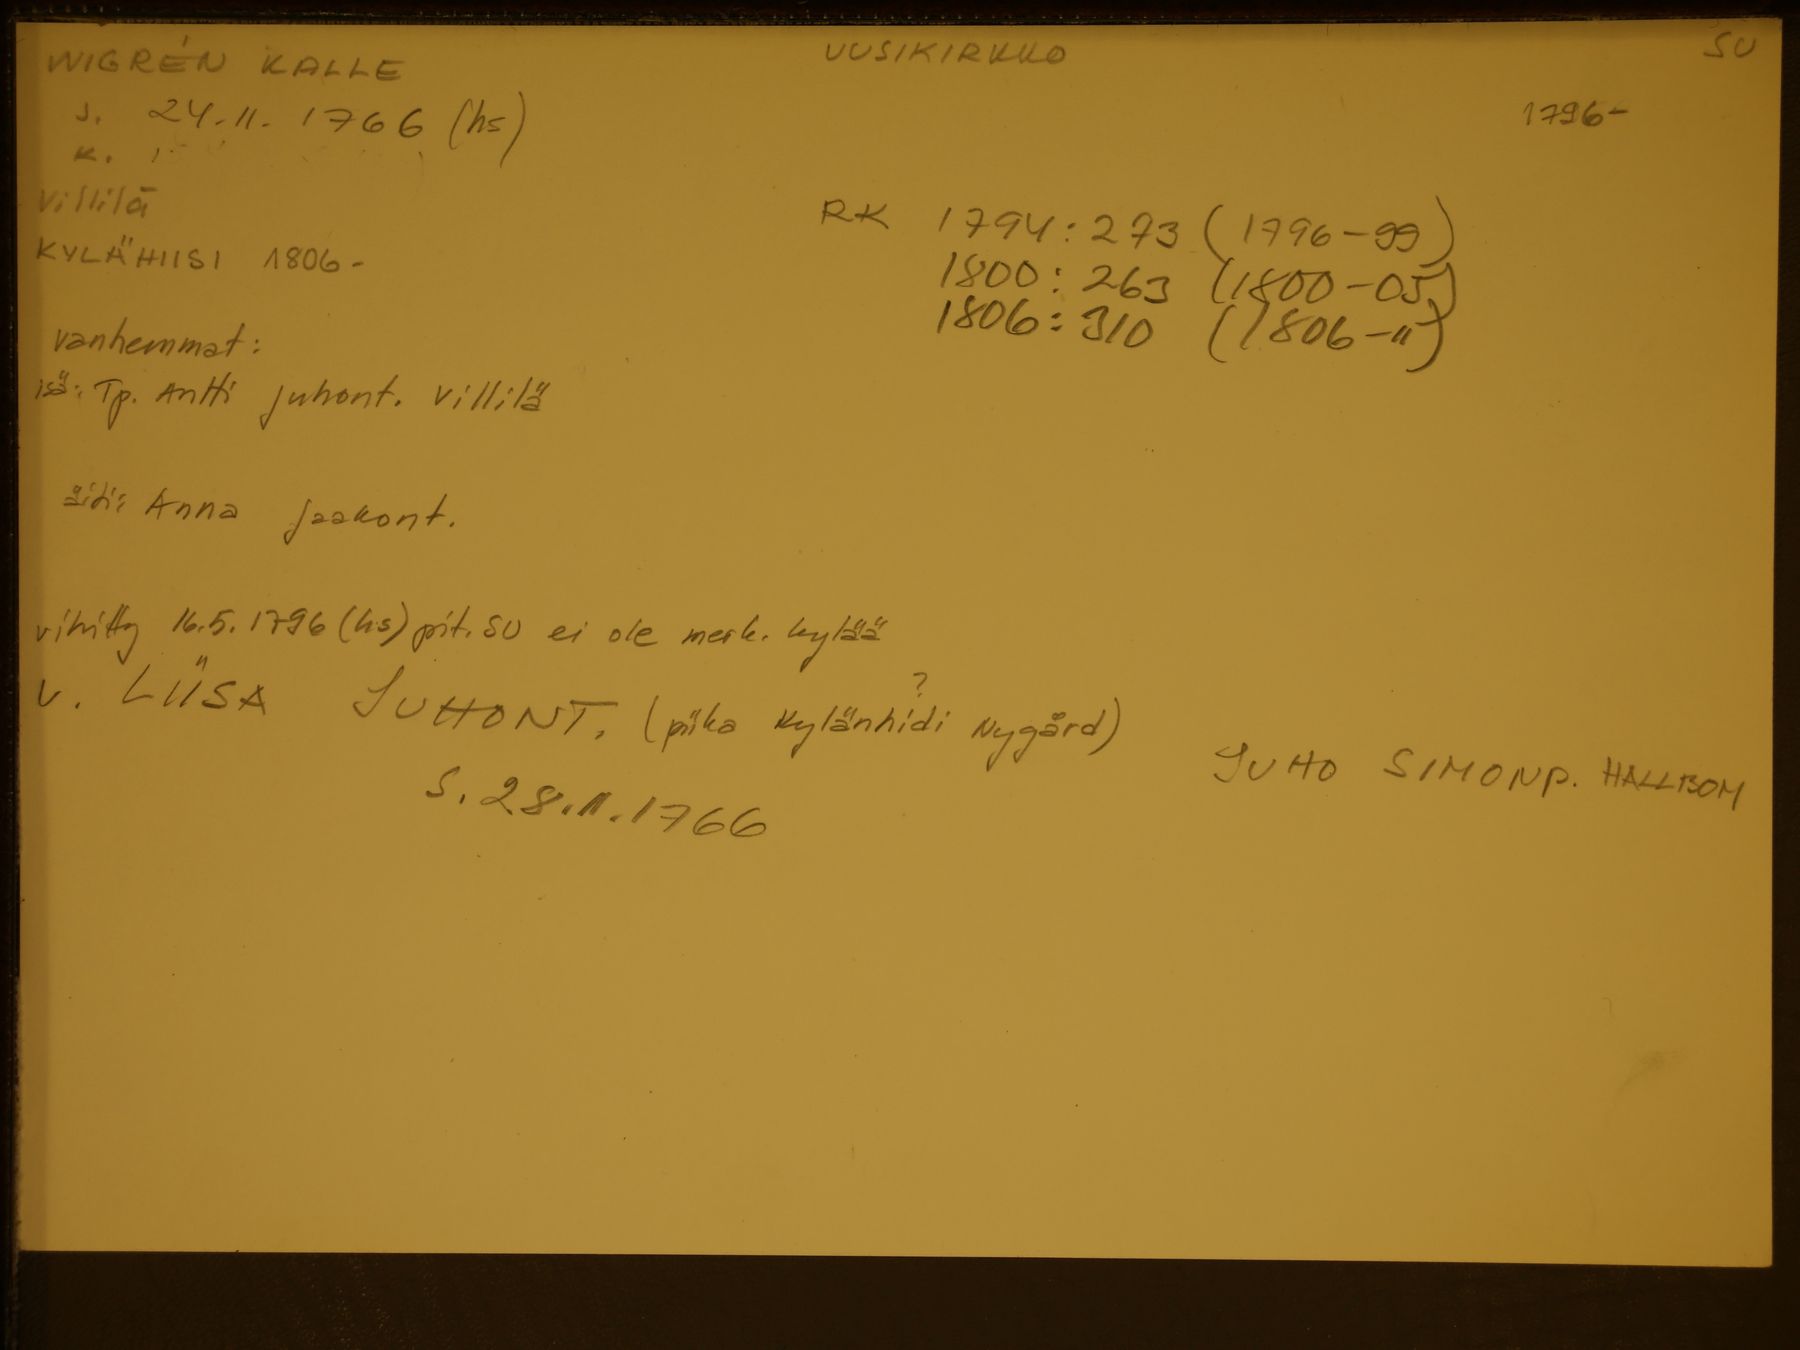 WIGRÉN KALLE UUSIKIRKKO SU
s. 24.11.1766 (hs) 1796-
k.
Villilä
KYLÄHIISI 1806-
RK 1794:273 (1796-99)
1800:263 (1800-05)
1806:310 (1806-")
vanhemmat:
isä: Tp. Antti Juhont. Villilä
äiti: Anna Jaakont.
vihitty 16.5.1796 (hs) pit. SU ei ole merk. kylää
V. LIISA JUHONT. (piika Kylänhidi? Nygård)
JUHO SIMONP. HALLBOM
S. 28.11.1766